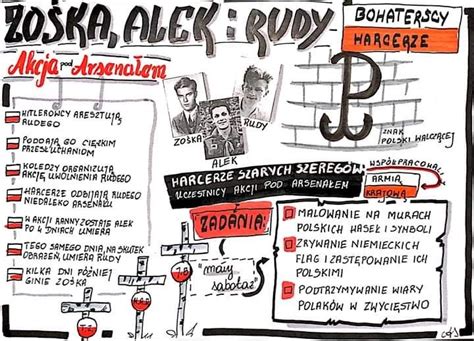 ZOŚKA, ALEK i RUDY
BOHATERSCY
HARCERZE
Akcja pod Arsenałem
HITLEROWCY ARESZTUJĄ
RUDEGO
PODDAJĄ GO CIĘŻKIM
PRZESŁUCHANIOM
KOLEDZY ORGANIZUJĄ
AKCJĘ UWOLNIENIA RUDEGO
HARCERZE ODBIJAJĄ RUDEGO
NIEDALEKO ARSENAŁU
W AKCJI RANNY ZOSTAJE ALEK
PO 4 DNIACH UMIERA
TEGO SAMEGO DNIA, NA SKUTEK
OBRAŻEŃ, UMIERA RUDY
KILKA DNI PÓŹNIEJ
GINIE ZOŚKA
ZOŚKA
ALEK
RUDY
ZNAK
POLSKI WALCZĄCEJ
HARCERZE SZARYCH SZEREGÓW
UCZESTNICY AKCJI POD ARSENAŁEM
WSPÓŁPRACOWALI
ARMIA
KRAJOWA
ZADANIA:
"mały
sabotaż"
MALOWANIE NA MURACH
POLSKICH HASEŁ I SYMBOLI
ZRYWANIE NIEMIECKICH
FLAG I ZASTĘPOWANIE ICH
POLSKIMI
PODTRZYMYWANIE WIARY
POLAKÓW W ZWYCIĘSTWO